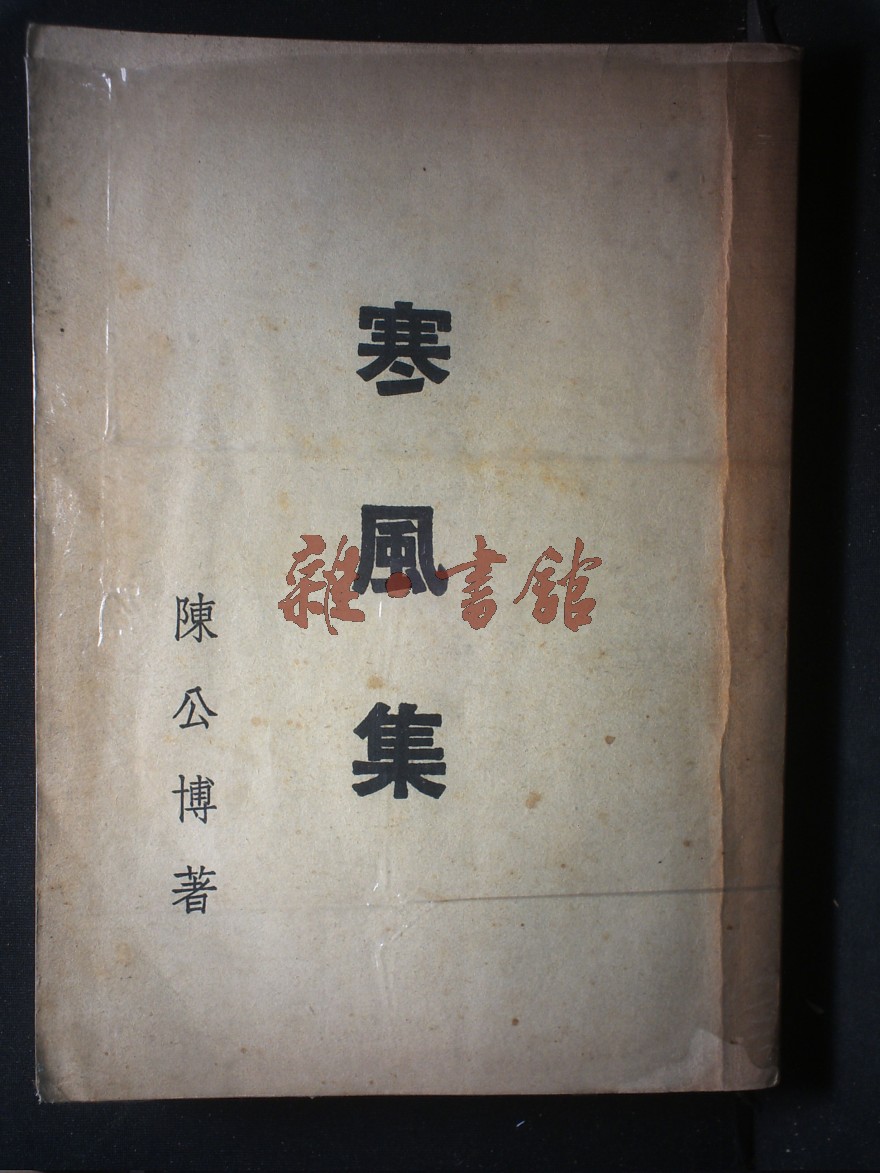 寒風集
陳公博著
雜·書館